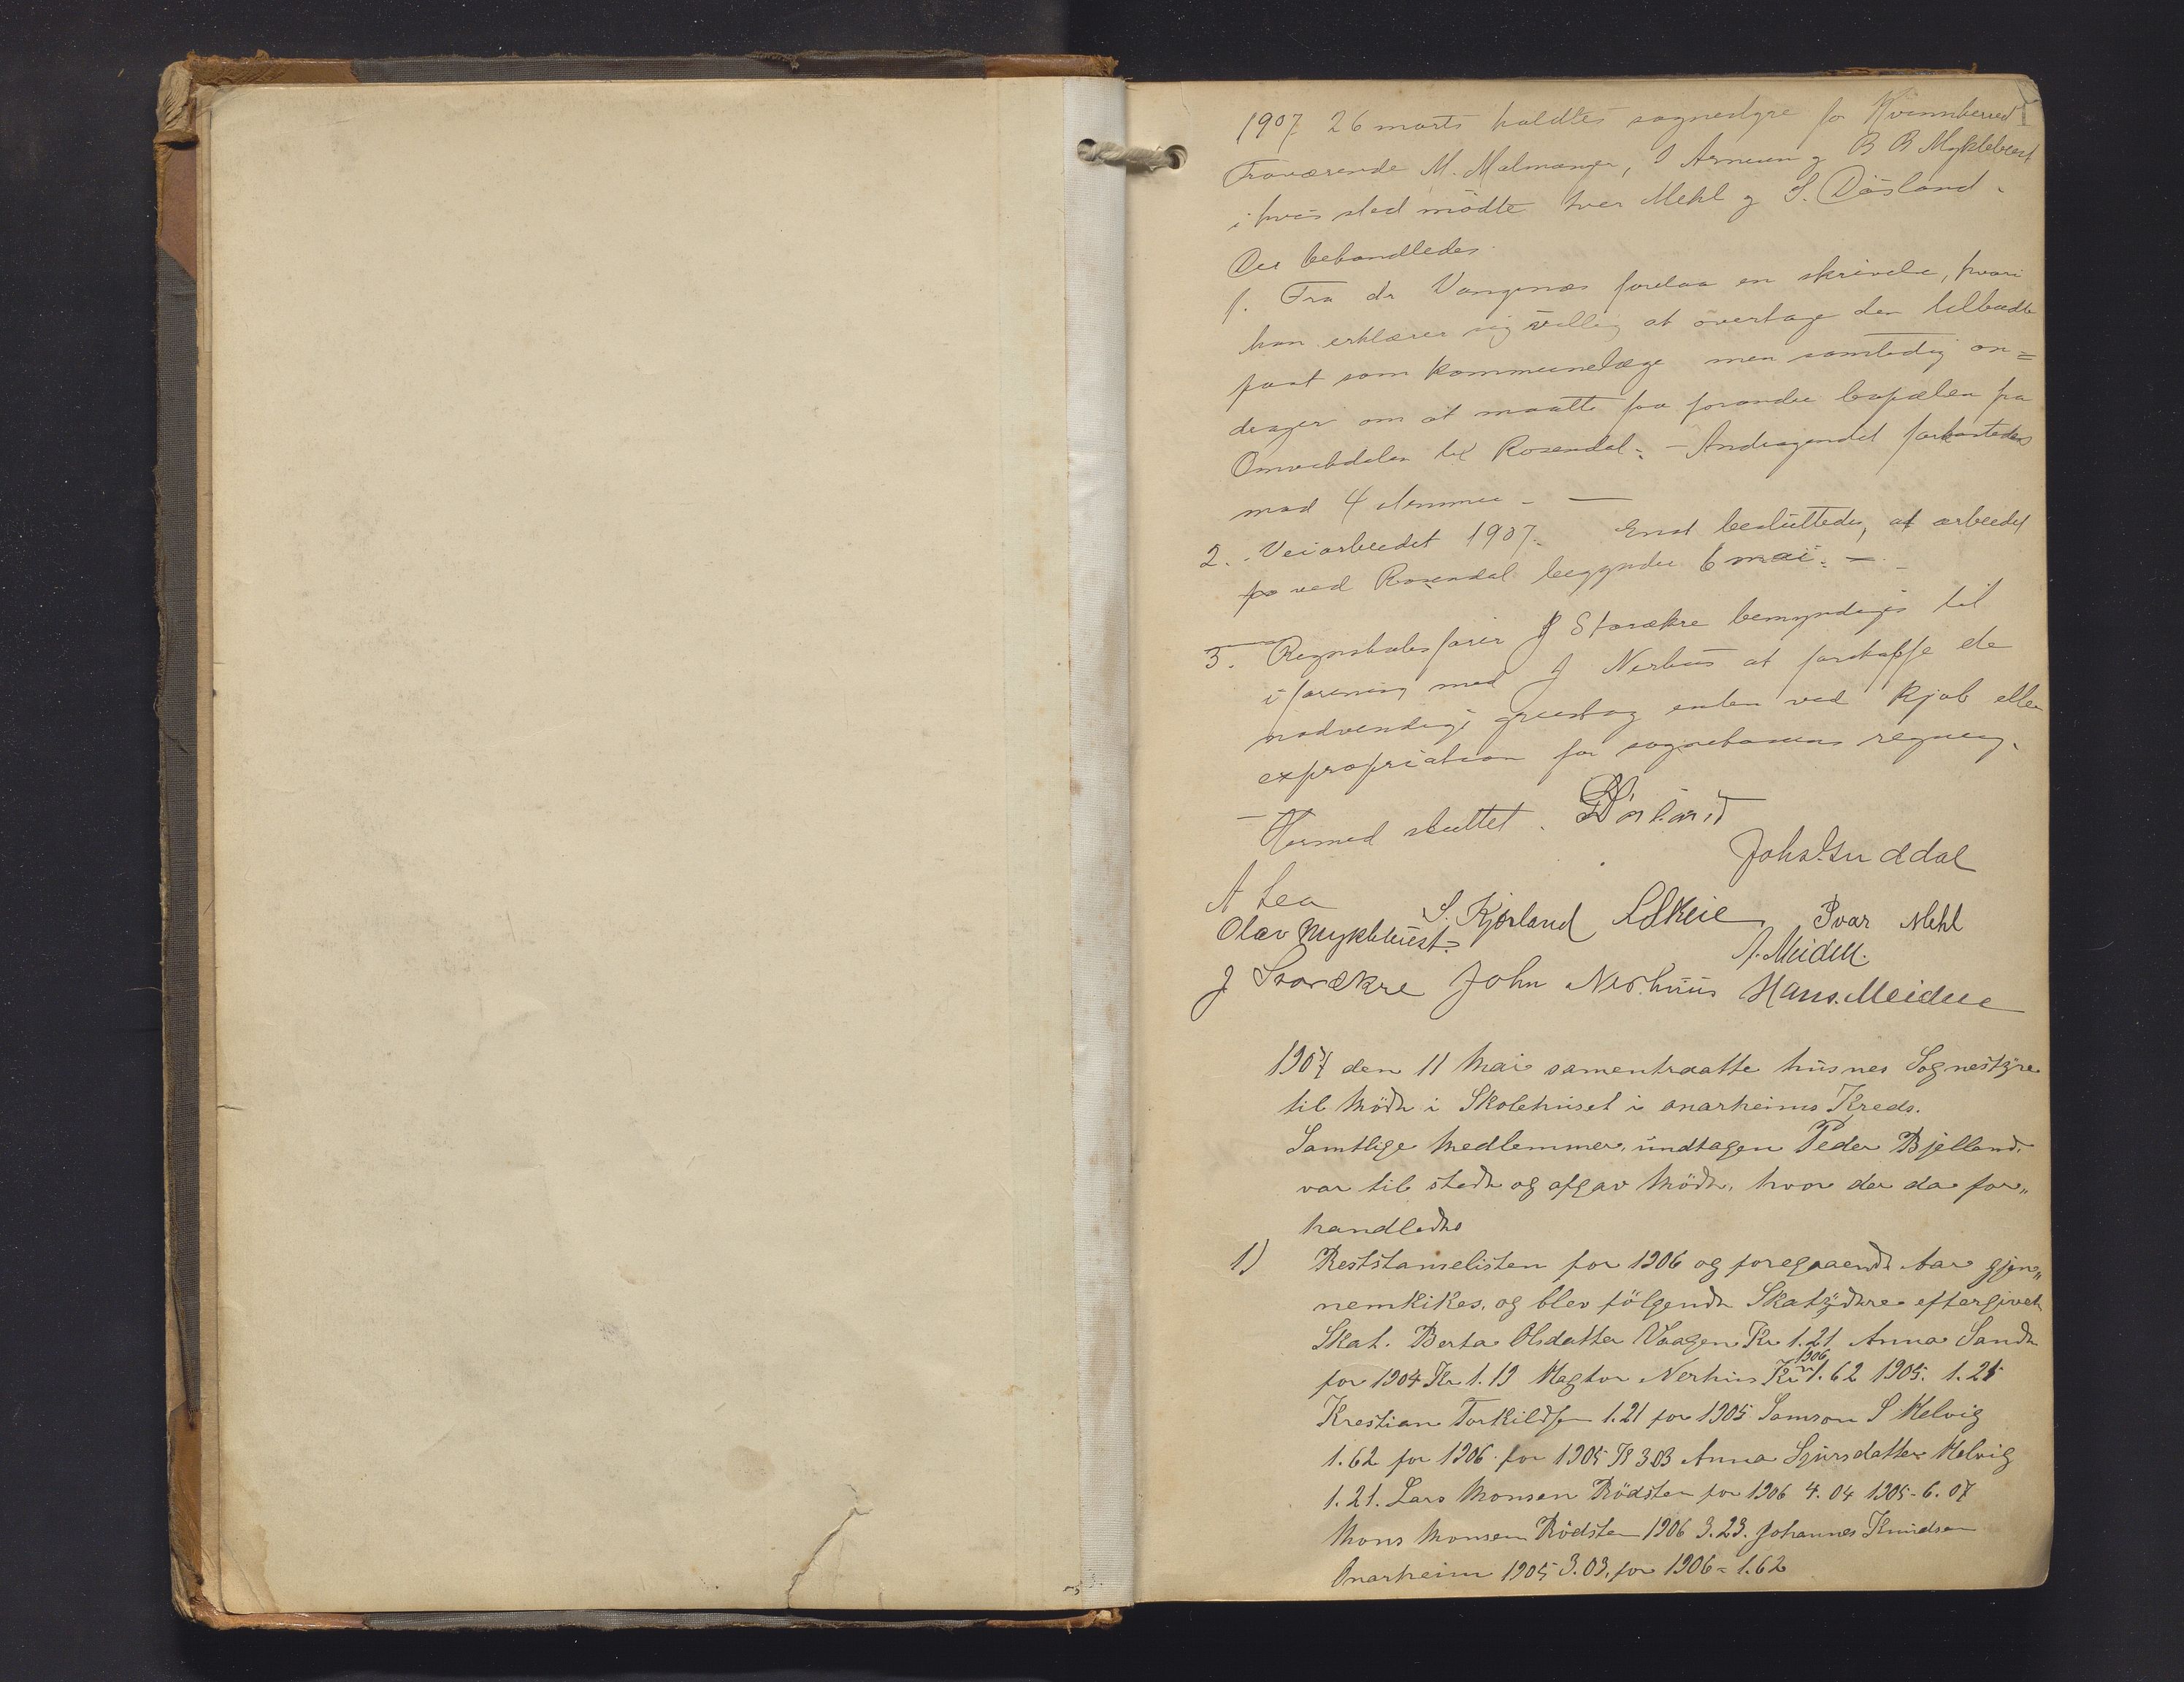 1907 26 marts holdtes sognestyre for Kvinnherred
Fraværende M. Malmanger, I Arnesen og B B Myklebust
i hvis sted mödte Iver Mehl og S. Døsland.
Der behandledes
1. Fra dr Vangsnæs forelaa en skrivelse, hvori
han erklærer sig villig at overtage den tilbudte
post som kommunelæge men samtidig an=
drager om at maatte faa forandre bopælen fra
Omvikdalen til Rosendal. – Andragendet forkastedes
mod 4 stemmer. —
2. Veiarbeidet 1907. Enst besluttedes, at arbeidet
ved Rosendal begynder 6 mai. —
3. Regnskabsfører J Storækre bemyndiges til
i forening med J Nerhus at forskaffe de
nødvendige grustag enten ved kjøb eller
expropriation for sognekassens regning.
— Hermed sluttet. Døsland
Johs. Guddal
A Lea
S. Kjørland Ivar Mehl
Olav Myklebust.
A. Meidell.
J Storækre John Nerhuus Hans. Meidell
1907 den 11 Mai samentraatte husnes Sognestyre
til Möde i Skolehuset i onarheims Kreds.
Samtlige Medlemmer, undtagen Peder Bjelland
var til stede og afgav Möde, hvor der da for„
handledes
1) Reststanselisten for 1906 og foregaaende Aar gjen„
nemkikes, og blev fölgende Skatydere eftergivet
Skat. Berta Olsdatter Vaagen Kr 1.21 Anna Sande
for 1904 Kr 1.19 Magtor Nerhus Kr 1906 1.62 1905. 1.21
Krestian Torkildsen 1.21 for 1905 Samson S Helvig
1.62 for 1906 for 1905 K 3.03 Anna Sjursdatter Helvig
1.21. Lars Monsen Rödsten for 1906 4.04 1905 - 6.07
Mons Monsen Rödsten 1906 3.23. Johannes Knudsen
Onarheim 1905 3.03, for 1906 = 1.62